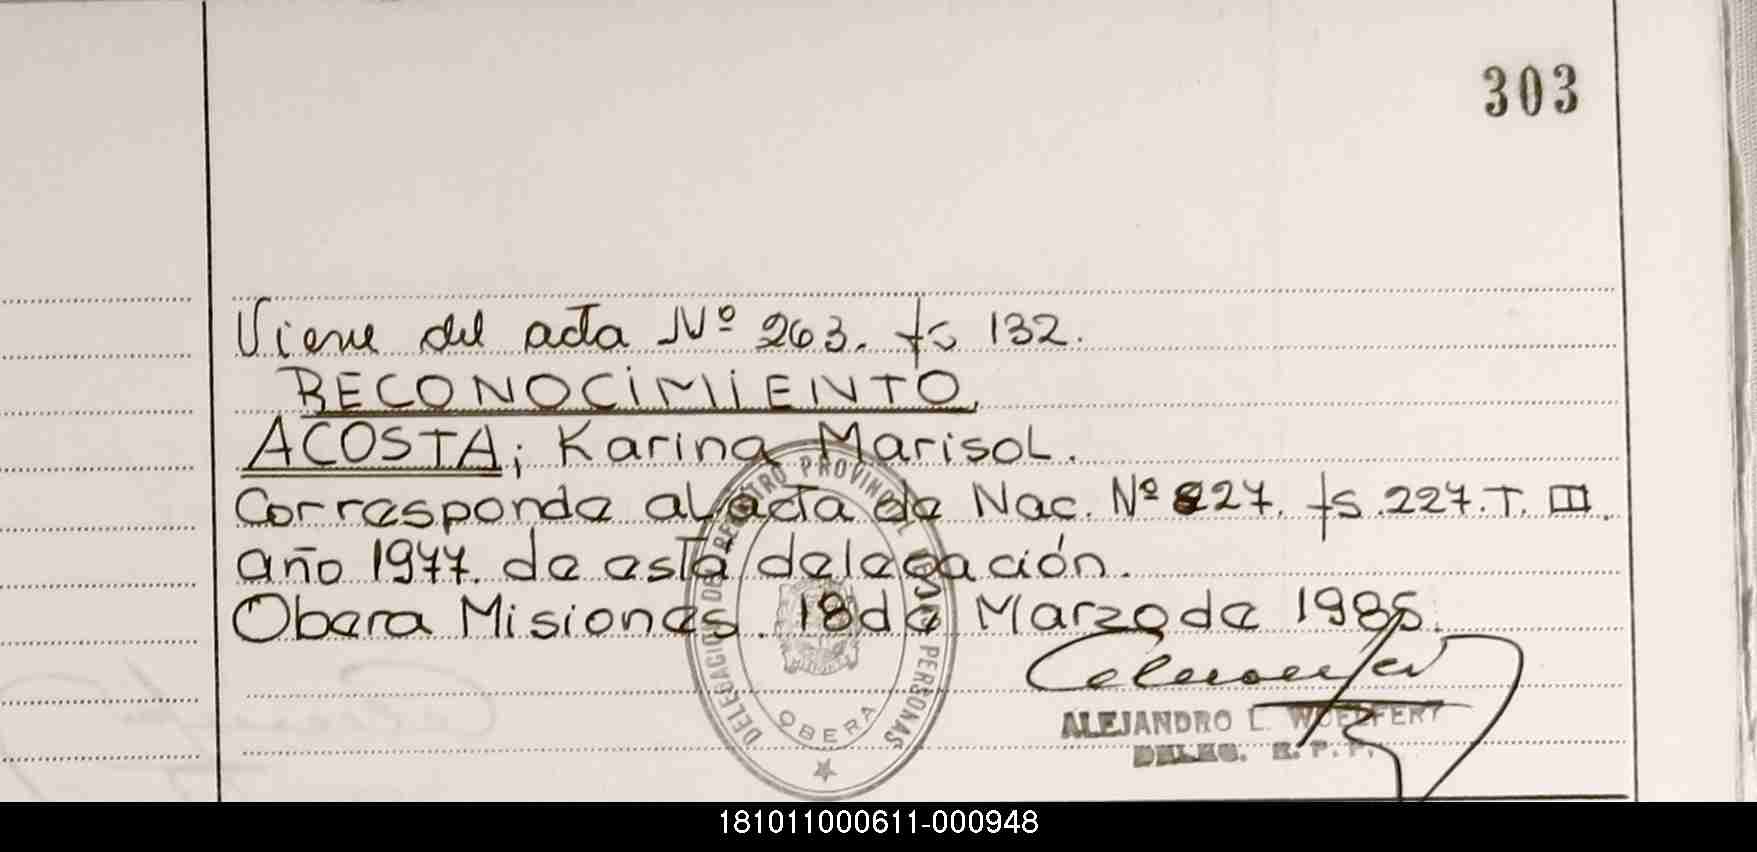 303
Viene del acta Nº 263. fs 132.
RECONOCIMIENTO.
ACOSTA; Karina Marisol.
Corresponde al acta de Nac. Nº 827. fs. 227. T. III.
año 1977. de esta delegación.
Obera Misiones. 18 de Marzo de 1985.
DELEGACION DEL REGISTRO PROVINCIAL DE LAS PERSONAS
OBERA
ALEJANDRO L. WOELFERT
DELEG. R. P. P.
181011000611-000948